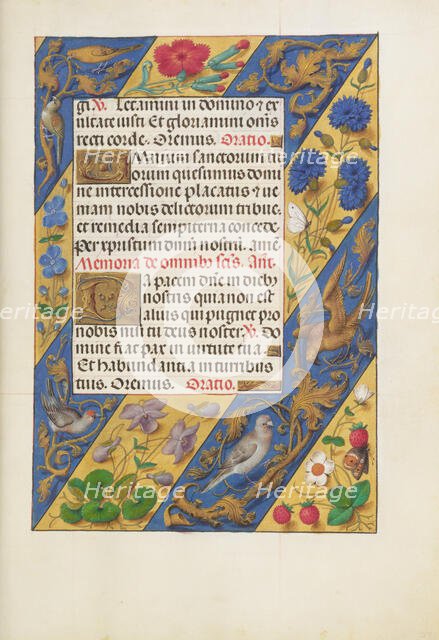 gi. V. Letamini in domino et ex
ultate iusti Et gloriamini om̄s
recti corde. Oremus. Oratio.
Omnium sanctorum tu
orum quesumus domi
ne intercessione placatus et ue
niam nobis delictorum tribue
et remedia sempiterna concede.
Per xp̄istum dn̄m nostrū. amē
Memoria de omnibꝰ sc̄is. Ant
Da pacem dn̄e in diebꝰ
nostris quia non est
alius qui pugnet pro
nobis nisi tu deus noster V. Do
mine fiat pax in uirtute tua
Et habundantia in turribus
tuis. Oremus. Oratio.
Heritage Images